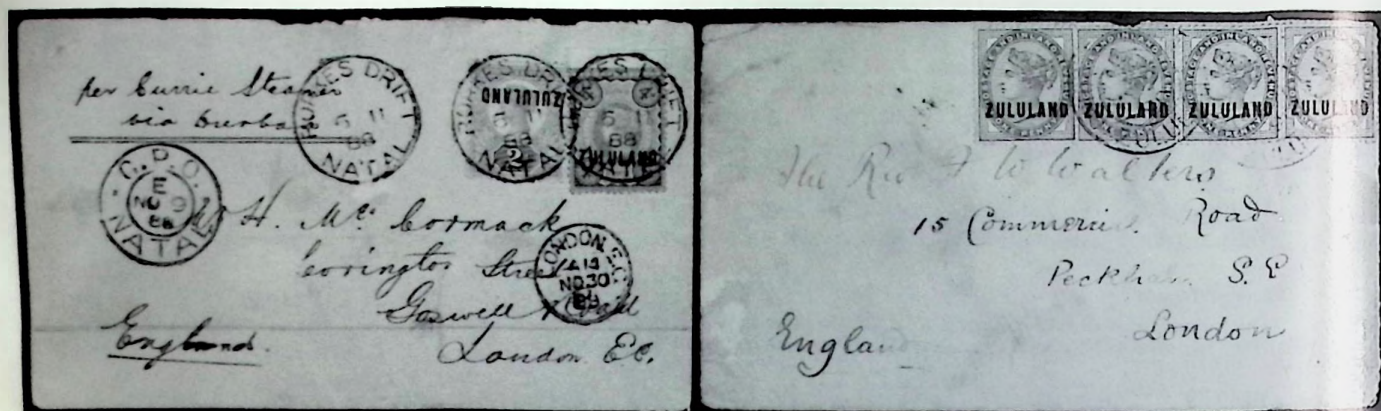 per Currie Steamer
via Durba
RORKES DRIFT
5 11
88
NATAL
RORKES DRIFT
5 11
88
NATAL
ZULULAND
2
RORKES DRIFT
5 11
88
NATAL
ZULULAND
G.P.O.
E
NO 9
88
NATAL
H. Mc Cormack
Covington Street
Goswell Road
London E.C.
England.
LONDON. E.C.
NO 30
88
ZULULAND
ZULULAND
ZULULAND
ZULULAND
The Rev F W Walters
15 Commerci. Road
Peckham S.E
London
England